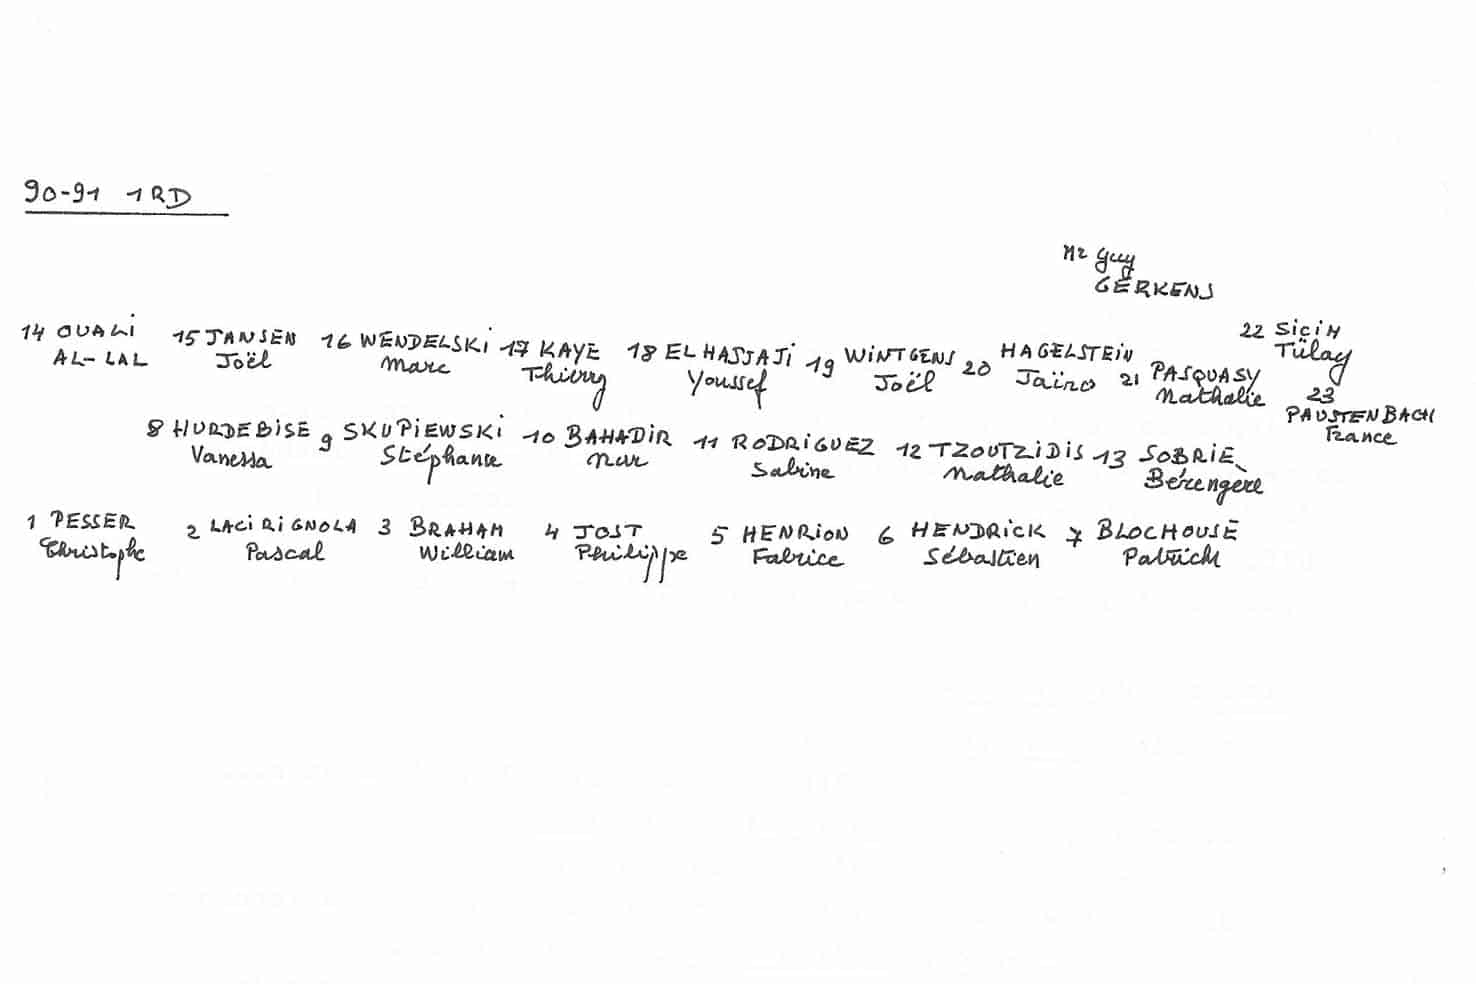 90-91 1RD
Mr Guy
GERKENS
14 OUALI 15 JANSEN 16 WENDELSKI 17 KAYE 18 EL HASSAJI 19 WINTGENS 20 HAGELSTEIN 21 PASQUASY 22 SICIM
AL-LAL Joël Marc Thierry Youssef Joël Jaïro Nathalie Tülay
23
PAUSTENBACH
France
8 HURDEBISE 9 SKUPIEWSKI 10 BAHADIR 11 RODRIGUEZ 12 TZOUTZIDIS 13 SOBRIE
Vanessa Stéphanie Nur Sabine Nathalie Bérengère
1 PESSER 2 LACIRIGNOLA 3 BRAHAM 4 JOST 5 HENRION 6 HENDRICK 7 BLOCHOUSE
Christophe Pascal William Philippe Fabrice Sébastien Patrick